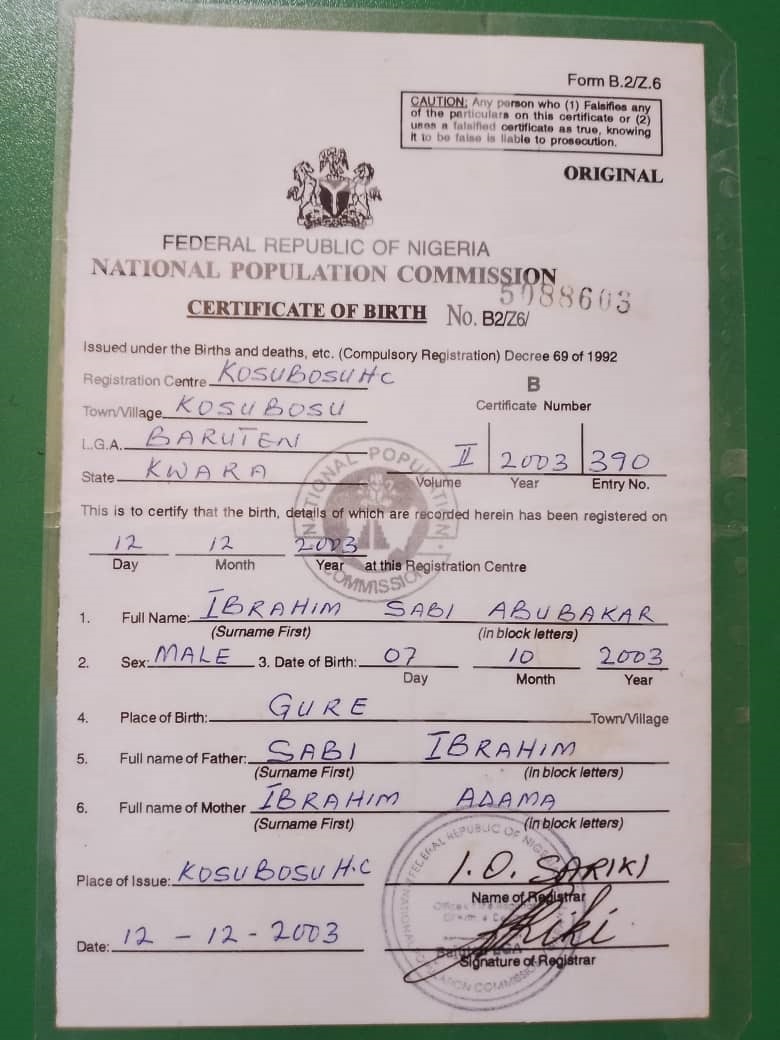 Form B.2/Z.6
CAUTION: Any person who (1) Falsifies any
of the particulars on this certificate or (2)
uses a falsified certificate as true, knowing
it to be false is liable to prosecution.
ORIGINAL
FEDERAL REPUBLIC OF NIGERIA
NATIONAL POPULATION COMMISSION
CERTIFICATE OF BIRTH No. B2/Z6/ 5088603
Issued under the Births and deaths, etc. (Compulsory Registration) Decree 69 of 1992
Registration Centre KOSUBOSU HC
B
Town/Village KOSUBOSU
Certificate Number
L.G.A. BARUTEN
II 2003 390
State KWARA
Volume Year Entry No.
NATIONAL POPULATION COMMISSION
This is to certify that the birth, details of which are recorded herein has been registered on
12 12 2003
Day Month Year at this Registration Centre
1. Full Name: IBRAHIM SABI ABUBAKAR
(Surname First) (in block letters)
2. Sex: MALE 3. Date of Birth: 07 10 2003
Day Month Year
4. Place of Birth: GURE Town/Village
5. Full name of Father: SABI IBRAHIM
(Surname First) (in block letters)
6. Full name of Mother IBRAHIM ADAMA
(Surname First) (in block letters)
Place of Issue: KOSUBOSU H.C I.O. SARIKI
Name of Registrar
Date: 12 - 12 - 2003
Signature of Registrar
FEDERAL REPUBLIC OF NIGERIA